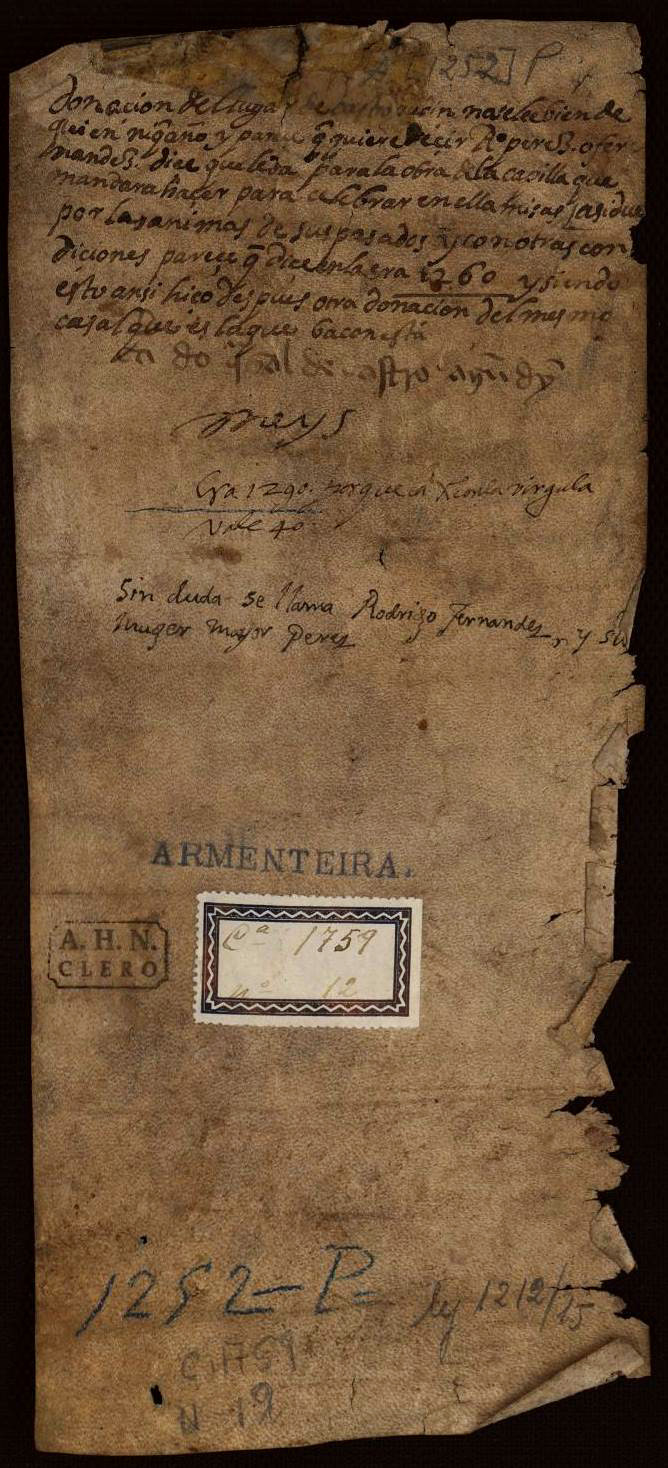 A [1252] P
donacion del lugar de castro no se lee bien de
quien ni gano y parece q̃ quiere decir Rº perez. o fer
nandez. dice que le da para la obra de la capilla que
mandara hacer para celebrar en ella misas
por las animas de sus pasados y con otras con
diciones parece q̃ dice en la era 1260 y siendo
esto ansi hiço despues otra donacion del mesmo
casal que es la que ba con esta
do de castro
meys
Era 1290. porque el X con la virgula
vale 40
Sin duda se llama Rodrigo Fernandez y su
muger mayor Perez
ARMENTEIRA.
A. H. N.
CLERO
Cª 1759
nº 12
1252 - P
1212/15
C 1759
N 12